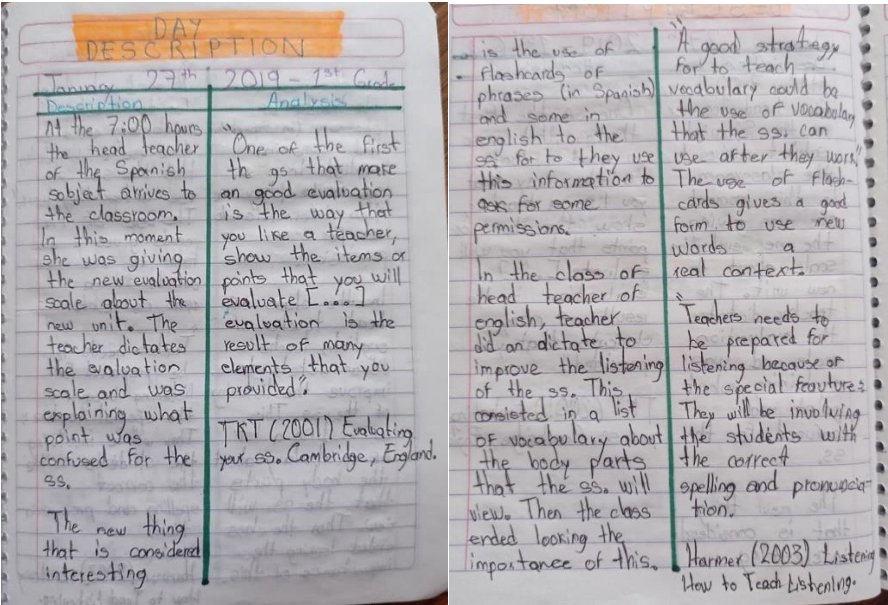 DAY
DESCRIPTION
January 27th 2019 - 1st Grade
Description
At the 7:00 hours
the head teacher
of the Spanish
sobject arrives to
the classroom.
In this moment
she was giving
the new evaluation
scale about the
new unit. The
teacher dictates
the evaluation
scale and was
explaining what
point was
confused for the
ss.
The new thing
that is considered
interesting
Analysis
"One of the first
th gs that make
an good evaluation
is the way that
you like a teacher,
show the items or
points that you will
evaluate [...]
evaluation is the
result of many
elements that you
provided".
TKT (2001) Evaluating
your ss. Cambridge, England.
is the use of
flashcards of
phrases (in Spanish)
and some in
english to the
ss for to they use
this information to
ask for some
permissions.
In the class of
head teacher of
english, teacher
did an dictate to
improve the listening
of the ss. This
consisted in a list
of vocabulary about
the body parts
that the ss. will
view. Then the class
ended looking the
importance of this.
"A good strategy
for to teach
vocabulary could be
the use of vocabulary
that the ss. can
use after they work"
The use of flash-
cards gives a good
form to use new
words a
real context.
"Teachers needs to
be prepared for
listening because of
the special
They will be involving
the students with
the correct
spelling and pronuncia-
tion.
Harmer (2003) Listening
How to Teach Listening.